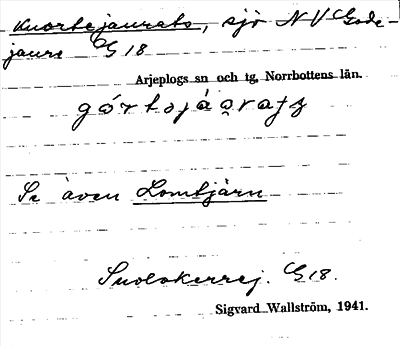 Kuortejaurats, sjö NV Gode-
jaure G18
Arjeplogs sn och tg, Norrbottens län.
Se även Lomtjärn
G18.
Sigvard Wallström, 1941.